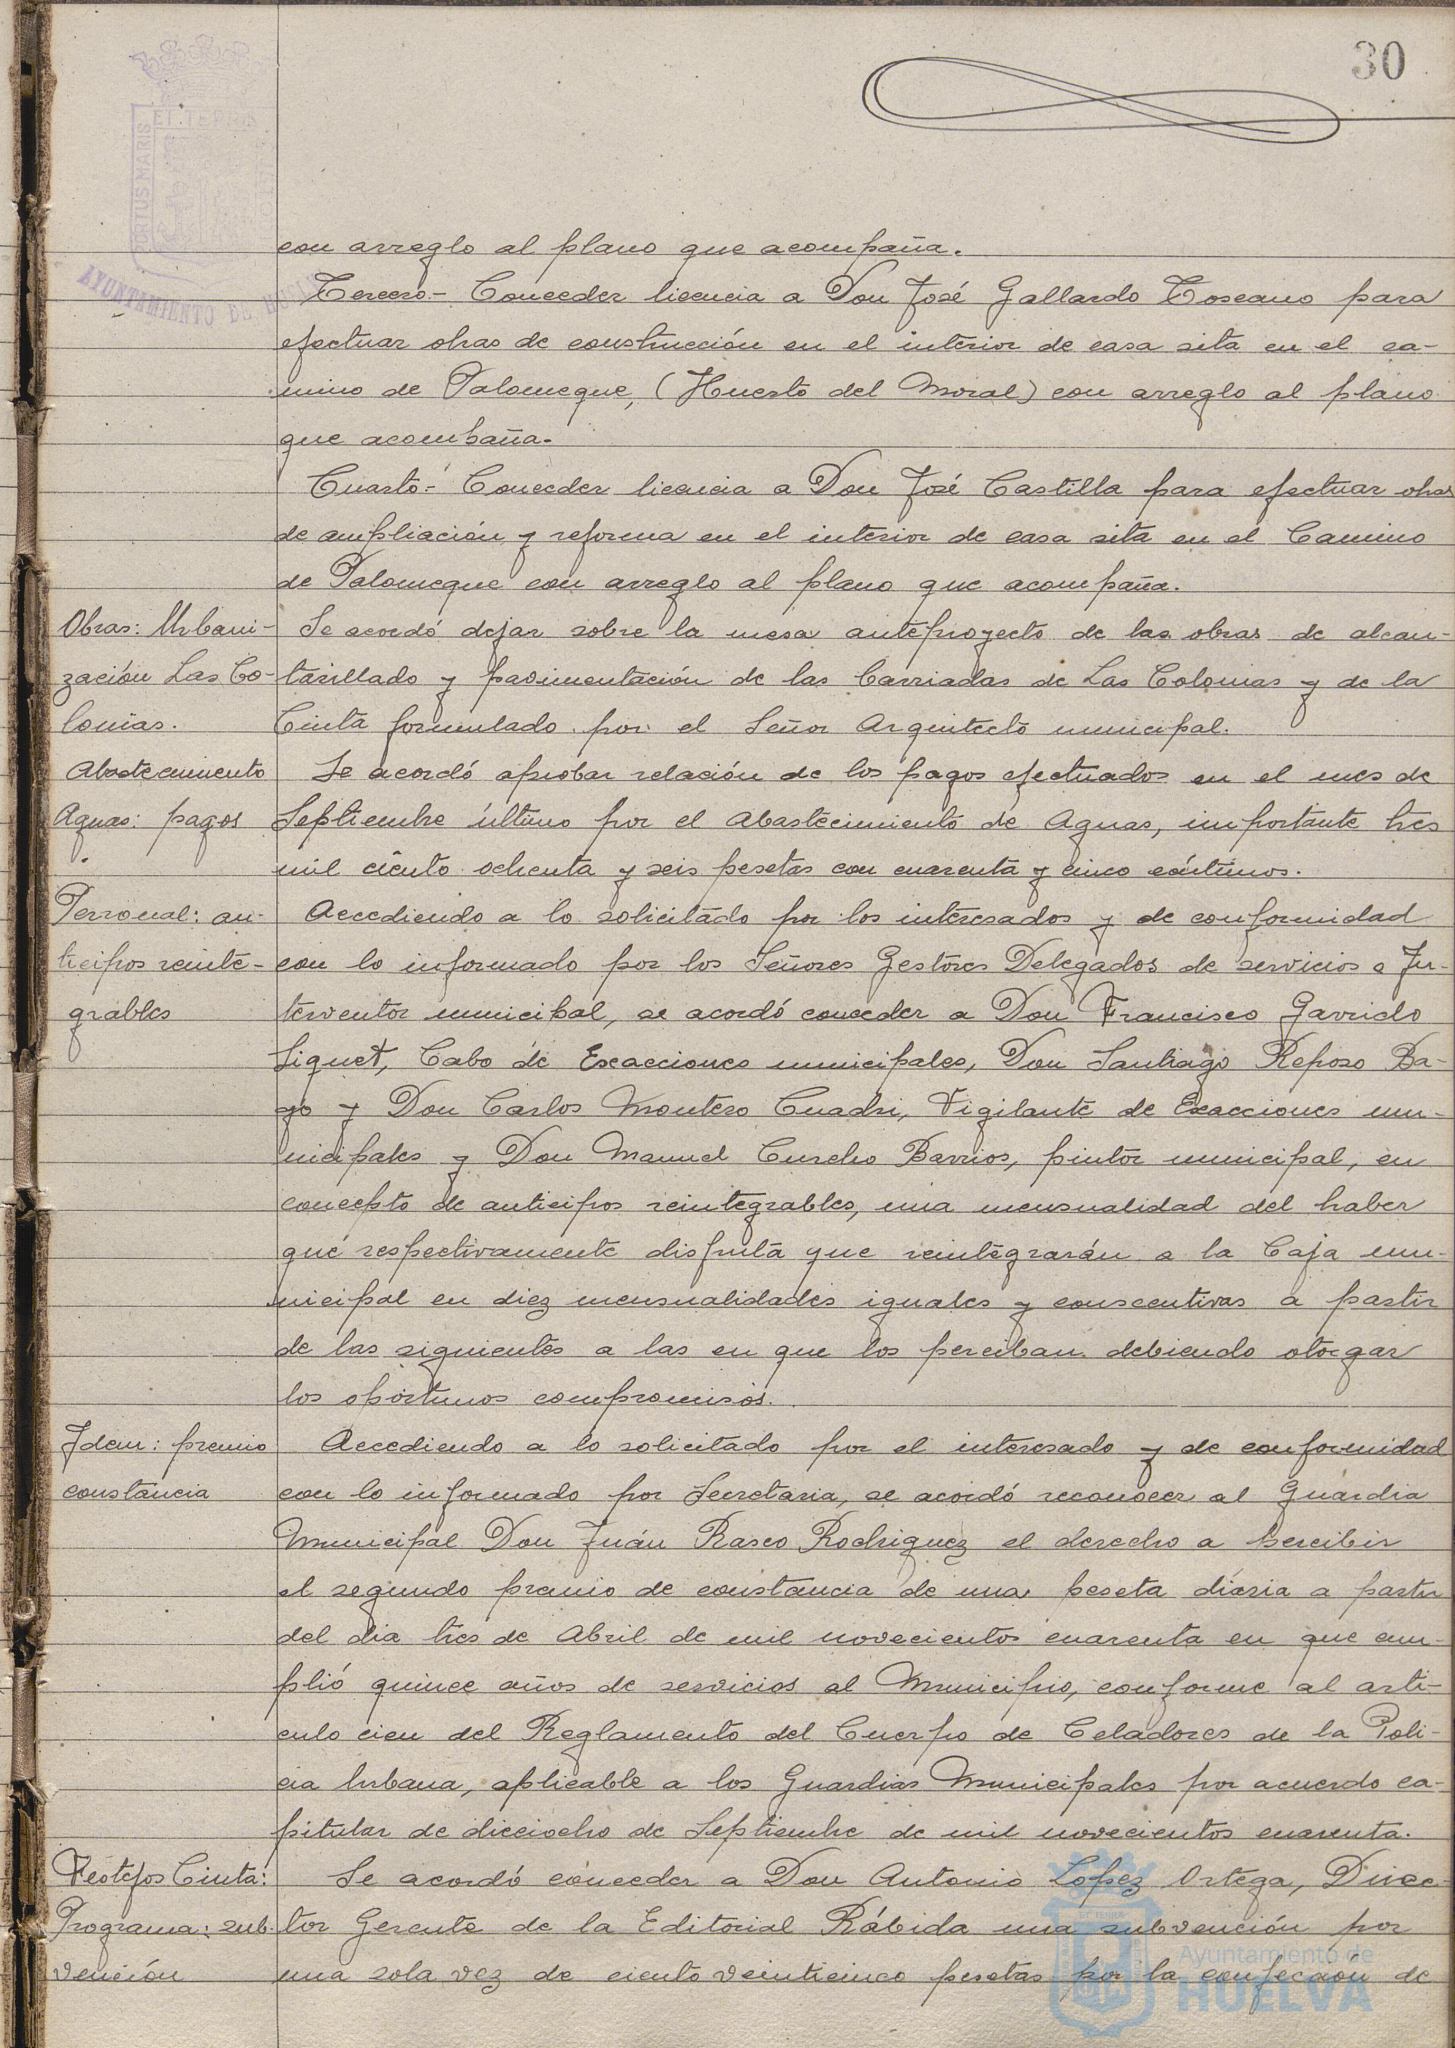 30
ET TERRE
PORTUS MARIS
AYUNTAMIENTO DE HUELVA
con arreglo al plano que acompaña.
Tercero.- Conceder licencia a Don José Gallardo Toscano para
efectuar obras de construcción en el interior de casa sita en el ca-
mino de Palomeque, (Huerto del Moral) con arreglo al plano
que acompaña.
Cuarto.- Conceder licencia a Don José Castilla para efectuar obras
de ampliación y reforma en el interior de casa sita en el Camino
de Palomeque con arreglo al plano que acompaña.
Obras: Urbani-
zación Las Co-
lonias.
Se acordó dejar sobre la mesa anteproyecto de las obras de alcan-
tarillado y pavimentación de las barriadas de Las Colonias y de la
Cinta formulado por el Señor Arquitecto municipal.
Abastecimiento
Aguas: pagos
Se acordó aprobar relación de los pagos efectuados en el mes de
Septiembre último por el Abastecimiento de Aguas, importante tres
mil ciento ochenta y seis pesetas con cuarenta y cinco céntimos.
Personal: an-
ticipos reinte-
grables
Accediendo a lo solicitado por los interesados y de conformidad
con lo informado por los Señores Gestores Delegados de servicios e In-
terventor municipal, se acordó conceder a Don Francisco Garrido
Siquet, Cabo de Exacciones municipales, Don Santiago Reposo Ba-
go y Don Carlos Montero Cuadri, Vigilante de Exacciones mu-
nicipales y Don Manuel Curcho Barrios, pintor municipal, en
concepto de anticipos reintegrables, una mensualidad del haber
que respectivamente disfruta que reintegrarán a la Caja mu-
nicipal en diez mensualidades iguales y consecutivas a partir
de las siguientes a las en que los perciban debiendo otorgar
los oportunos compromisos.
Idem: premio
constancia
Accediendo a lo solicitado por el interesado y de conformidad
con lo informado por Secretaria, se acordó reconocer al Guardia
Municipal Don Juán Rasco Rodriguez el derecho a percibir
el segundo premio de constancia de una peseta diaria a partir
del dia tres de Abril de mil novecientos cuarenta en que cum-
plió quince años de servicios al Municipio, conforme al arti-
culo cien del Reglamento del Cuerpo de Celadores de la Poli-
cia Urbana, aplicable a los Guardias Municipales por acuerdo ca-
pitular de dieciocho de Septiembre de mil novecientos cuarenta.
Festejos Cinta:
Programa: sub-
vención
Se acordó conceder a Don Antonio Lopez Ortega, Direc-
tor Gerente de la Editorial Rábida una subvención por
una sola vez de ciento veinticinco pesetas por la confección de
Ayuntamiento de
HUELVA